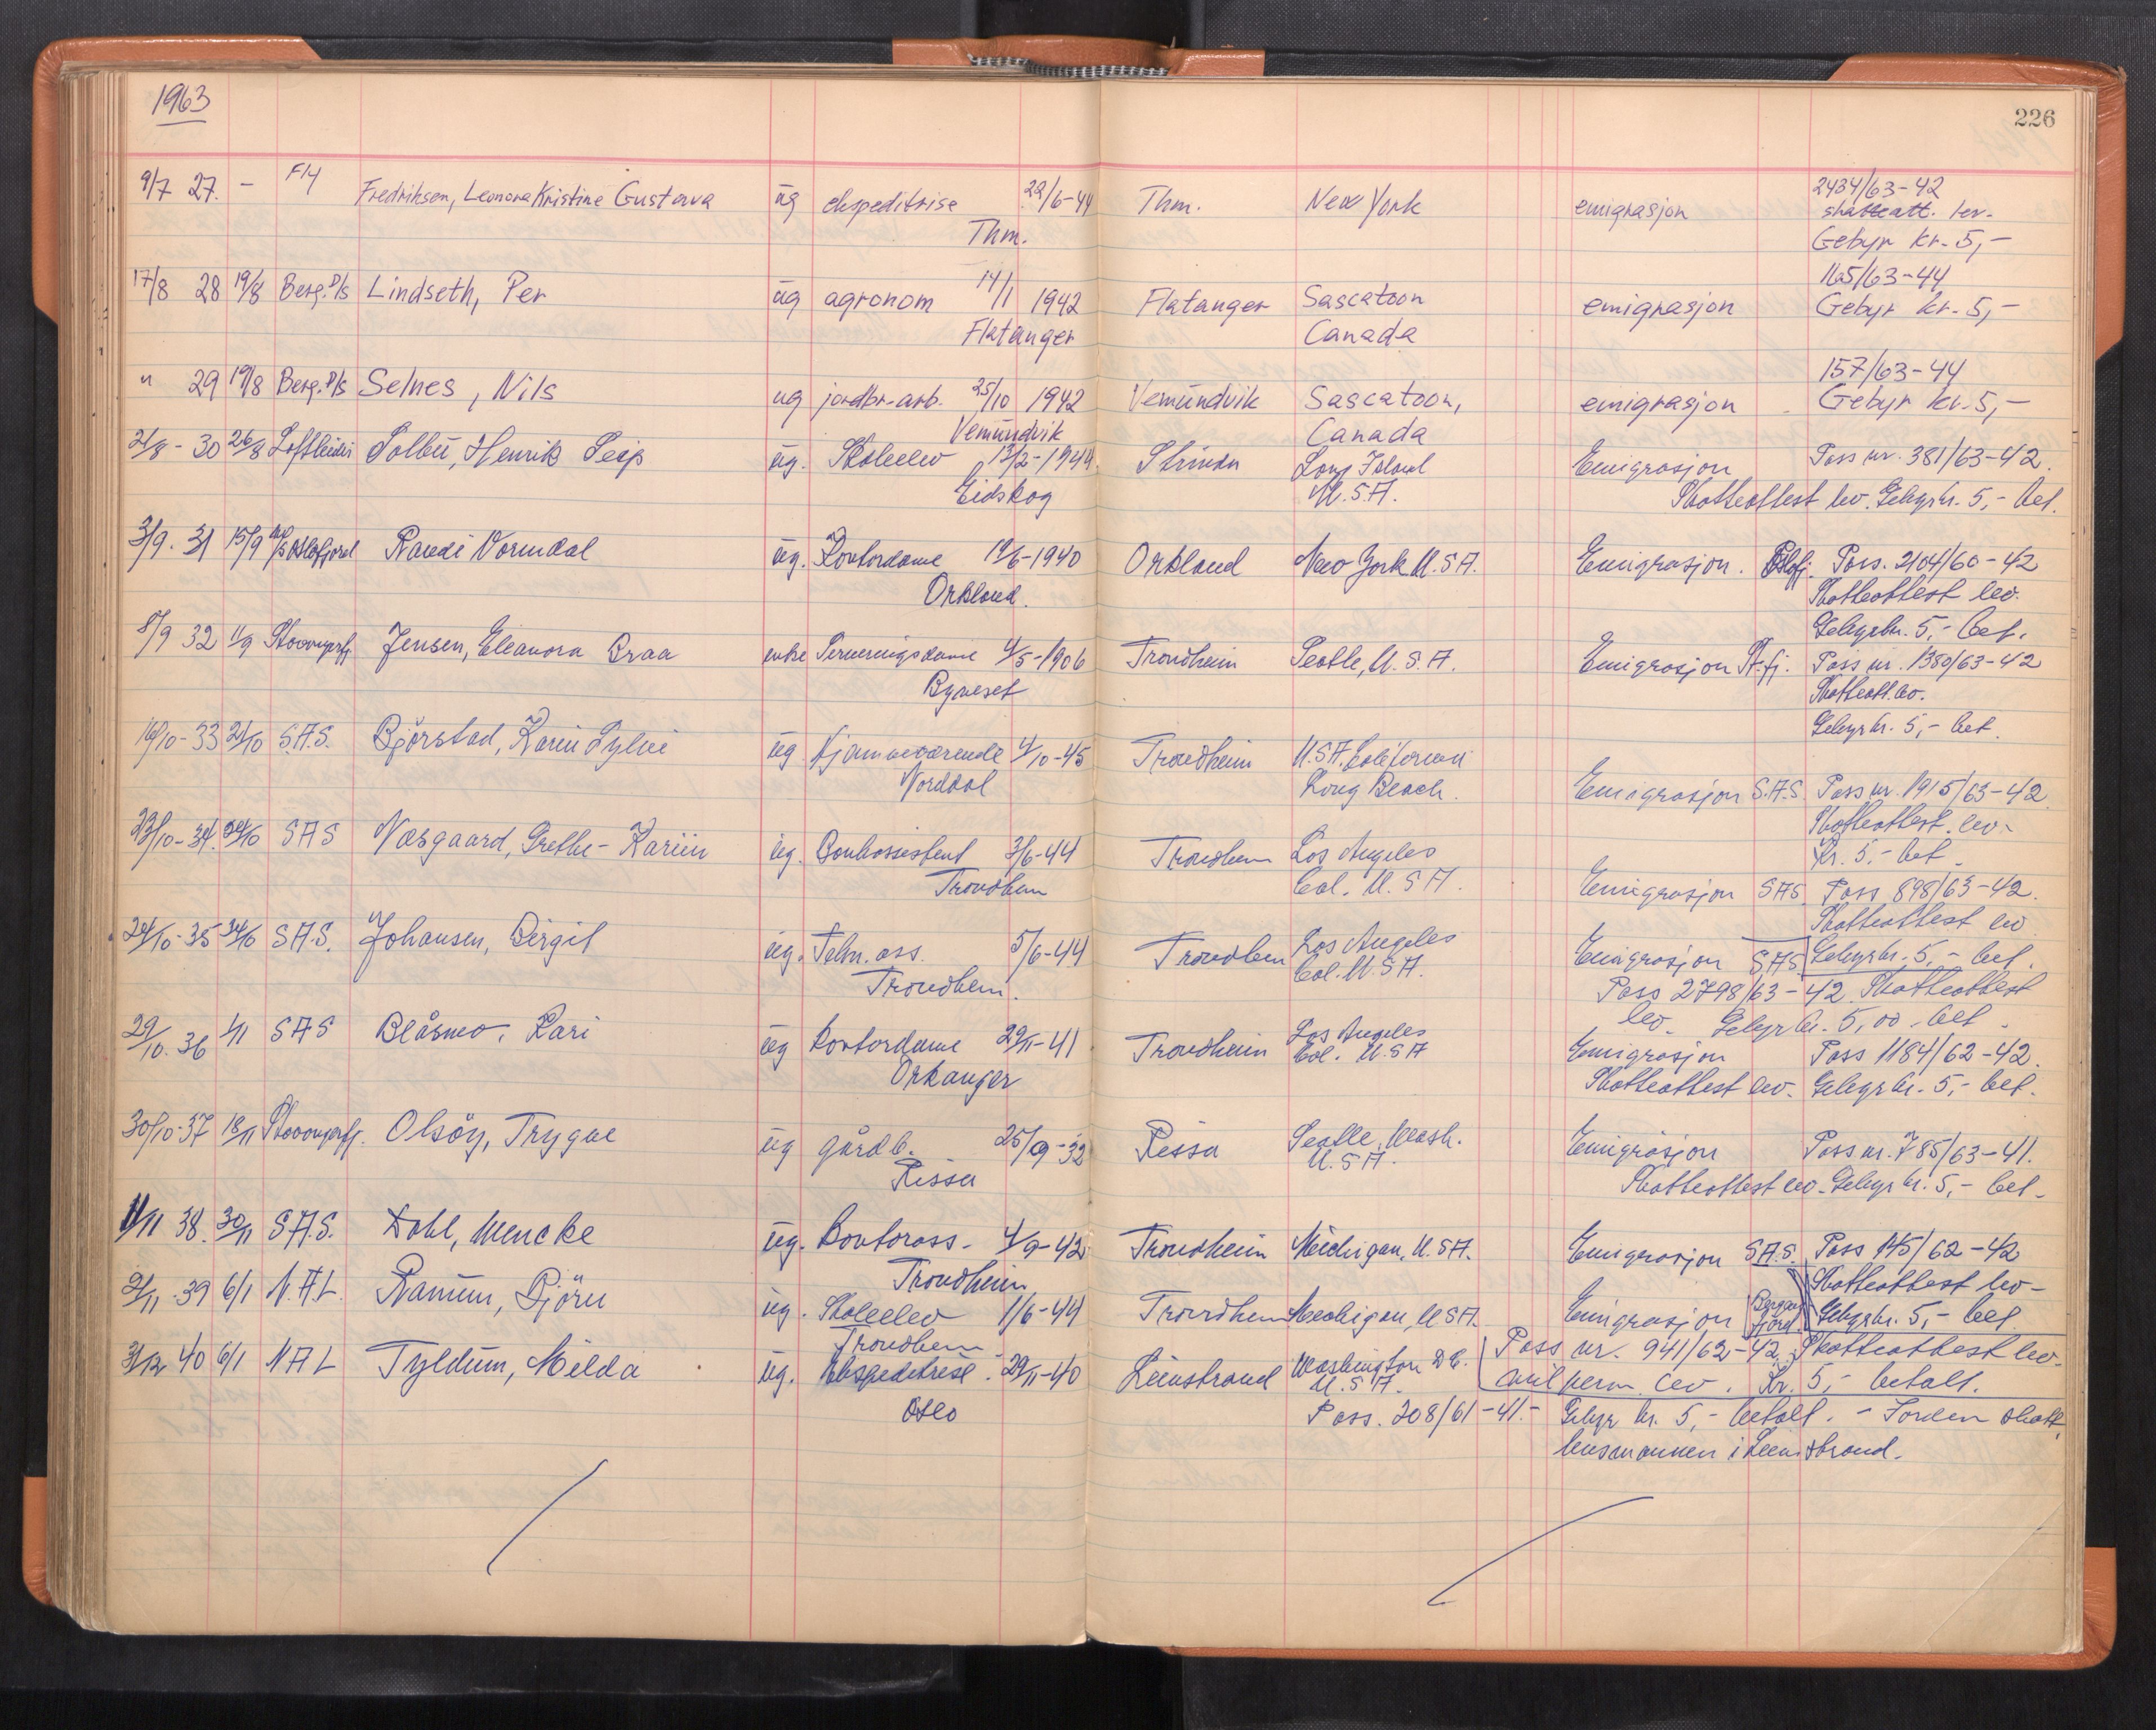 1963
226
9/7 27. - Fly Fredriksen, Leonora Kristine Gustava ug ekspeditrise 22/6-44 Thm. New York emigrasjon 2434/63-42
Thm. skatteatt. lev.
Gebyr kr. 5,-
17/8 28 19/8 Berg. D/S Lindseth, Per ug agronom 14/1 1942 Flatanger Sascatoon emigrasjon 165/63-44
Flatanger Canada Gebyr kr. 5,-
" 29 19/8 Berg. D/S Selnes, Nils ug jordbr.arb. 25/10 1942 Vemundvik Sascatoon, emigrasjon 157/63-44
Vemundvik Canada Gebyr kr. 5,-
21/8 - 30 26/8 Loftleidir Solbu, Henrik Seip ug. Skoleelev 13/2-1944 Strinda Long Island Emigrasjon Pass nr. 381/63-42.
Eidskog U.S.A. Skatteattest lev. Gebyr kr. 5,- bet.
3/9. 31 15/9 Oslofjord Randi Vormdal ug. Kontordame 19/6-1940 Orkland New York U.S.A. Emigrasjon. Oslofj. Pass. 2104/60-42
Orkland. Skatteattest lev.
Gebyr kr. 5,- bet.
8/9 32 11/9 Stavangerfj. Jensen, Eleanora Braa enke Serveringsdame 4/5-1906 Trondheim Seatle, U.S.A. Emigrasjon St.fj. Pass nr. 1380/63-42
Byneset Skatteatt. lev.
Gebyr kr. 5,- bet.
16/10 - 33 21/10 S.A.S. Bjørstad, Karin Sylvi ug hjemmeværende 4/10-45 Trondheim U.S.A. California
Norddal Long Beach. Emigrasjon S.A.S. Pass nr. 1915/63-42
Skatteattest. lev.
Kr. 5,- bet.
23/10 - 34. 24/10 SAS Næsgaard, Grethe-Kariin ug. Bankassistent 3/6-44 Trondheim Los Angeles
Trondheim Cal. U.S.A. Emigrasjon SAS. Pass 898/63-42.
Skatteattest lev
24/10 - 35 24/10 S.A.S. Johansen, Birgit ug. Telm. ass. 5/6-44 Trondheim Los Angeles Emigrasjon SAS Gebyr kr. 5,- bet.
Trondheim. Cal. U.S.A. Pass 2798/63-42. Skatteattest
lev. Gebyr kr. 5,00 - bet.
29/10. 36 1/11 SAS Blåsmo, Kari ug Kontordame 29/11-41 Trondheim Los Angeles Emigrasjon Pass 1184/62-42.
Orkanger Cal. U.S.A Skatteattest lev. Gebyr kr. 5,- bet.
30/10 - 37 18/11 Stavangerfj. Olsøy, Trygve ug gårdb. 25/9-32 Rissa Seatle. Wash. Emigrasjon Pass nr. 785/63-41.
Rissa U.S.A. Skatteattest lev. Gebyr kr. 5,- bet.
11/11 38. 30/11 S.A.S. Dahl, Wencke ug. Kontorass. 4/9-42 Trondheim Michigan, U.S.A. Emigrasjon S.A.S. Pass 145/62-42
Trondheim Skatteattest lev.
Gebyr kr. 5,- bet
21/11 - 39 6/1 N.A.L. Ramum, Bjørn ug. Skoleelev 1/6-44 Trondheim Mechigan, USA. Emigrasjon Bergensfjord.
Trondheim Pass nr. 941/62-42. Skatteattest lev.
mil perm. lev. Kr. 5,- betalt.
3/12 40 6/1 NAL Tyldum, Milda ug. Ekspeditrise. 29/11-40 Leinstrand Washington D.C.
Oslo U.S.A.
Pass. 208/61-41.- Gebyr kr. 5,- betalt. - Jorden skatt,
lensmannen i Leinstrand.